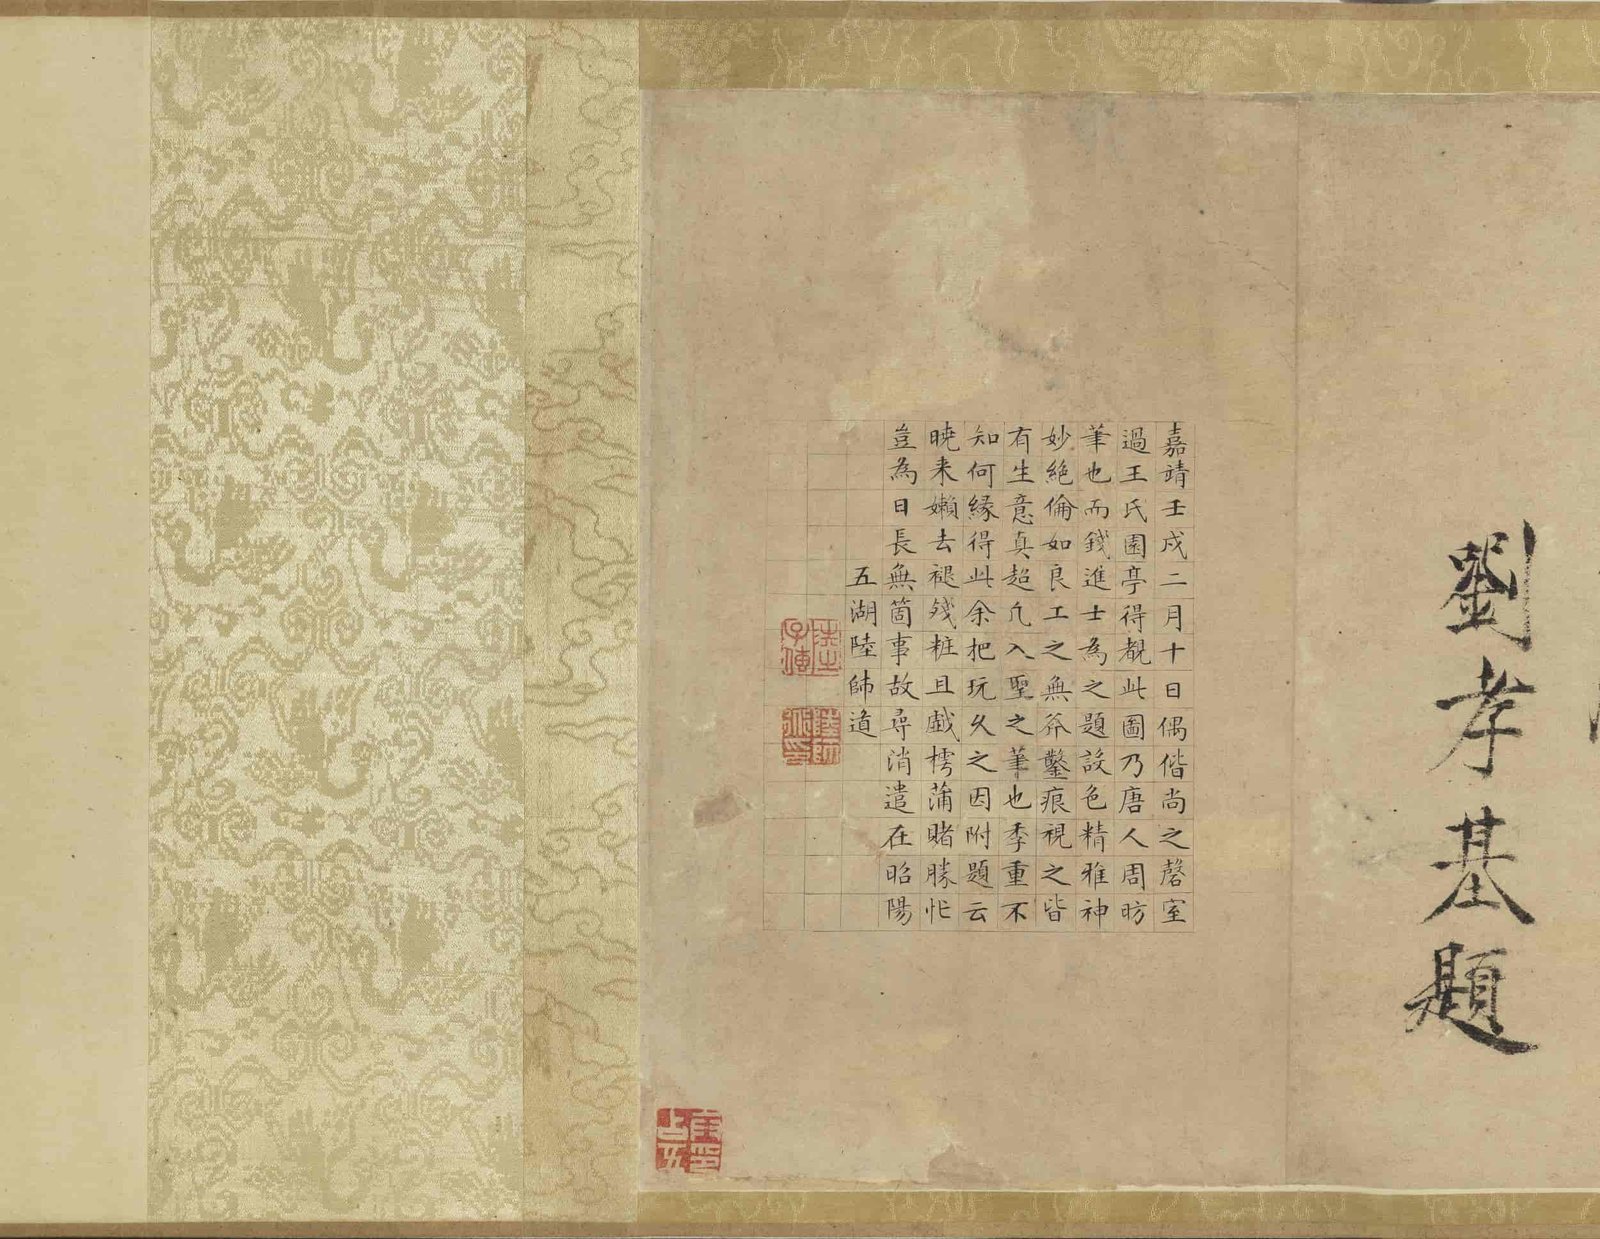 劉孝基題
嘉靖壬戌二月十日偶偕尚之磬室
過王氏園亭得覩此圖乃唐人周昉
筆也而錢進士為之題設色精雅神
妙絕倫如良工之無斧鑿痕視之皆
有生意真超凡入聖之筆也季重不
知何緣得此余把玩久之因附題云
曉来嬾去褪殘粧且戯樗蒲賭勝忙
豈為日長無箇事故尋消遣在昭陽
五湖陸師道